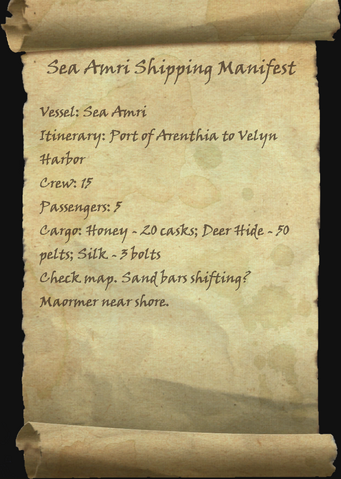 Sea Amri Shipping Manifest
Vessel: Sea Amri
Itinerary: Port of Arenthia to Velyn
Harbor
Crew: 15
Passengers: 5
Cargo: Honey - 20 casks; Deer Hide - 50
pelts; Silk - 3 bolts
Check map. Sand bars shifting?
Maormer near shore.